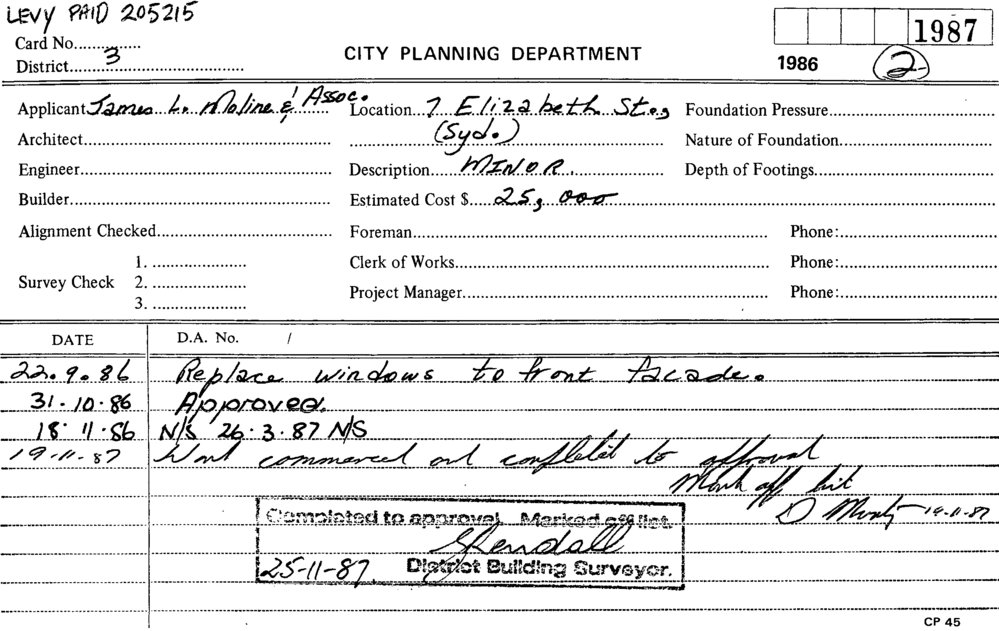 LEVY PAID 205215
Card No.............. 1987
District...3... CITY PLANNING DEPARTMENT 1986 2
Applicant James L. Moline & Assoc. Location...7 Elizabeth St., Foundation Pressure
Architect (Syd.) Nature of Foundation
Engineer Description...MINOR. Depth of Footings
Builder Estimated Cost $...25,000
Alignment Checked Foreman Phone:
1. Clerk of Works Phone:
Survey Check 2.
3. Project Manager Phone:
DATE D.A. No. /
22.9.86 Replace windows to front facade.
31-10-86 Approved.
18.11.86 N/S 26.3.87 N/S
19-11-87 Work commenced and completed to approval
Mark off list
19-11-87
Completed to approval. Marked off list.
Kendall
25-11-87. District Building Surveyor.
CP 45